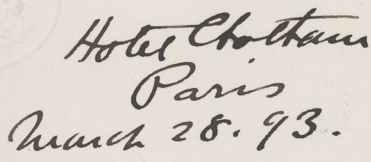 Hotel Chatham
Paris
March 28. 93.